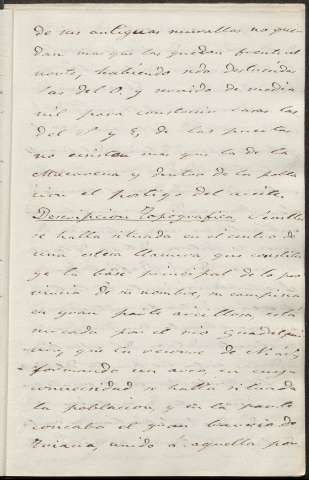 de sus antiguas murallas no que-
dan mas que las que dan frente al
norte, habiendo sido destruidas
las del O. y venido de media
mil para construir casas las
del S. y E; de las puertas
no existen mas que la de la
Macarena y dentro de la pobla
cion el postigo del aceite.
Descripcion Topografica. Sevilla
se halla situada en el centro de
una estensa llanura que constitu
ye la base principal de la pro
vincia de su nombre, su campiña
en gran parte arcillosa, esta
surcada por el rio Guadalqui
vir, que la recorre de N. a S,
formando un arco, en cuya
convexidad se halla situada
la poblacion, y en la parte
concaba el gran barrio de
Triana, unido á aquella por